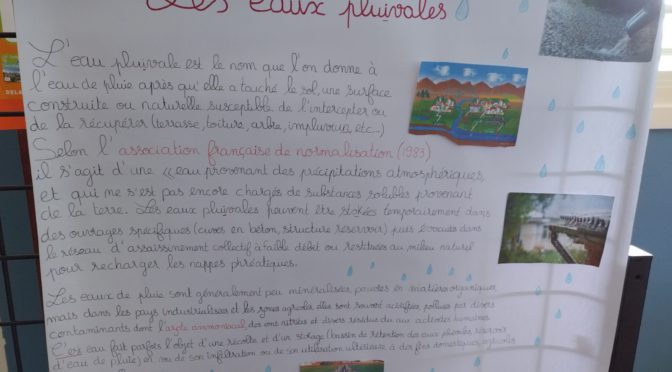 Les eaux pluivales
L'eau pluivale est le nom que l'on donne à
l'eau de pluie après qu'elle a touché le sol, une surface
construite ou naturelle susceptible de l'intercepter ou
de la récupérer (terrasse, toiture, arbre, impluvium, etc...)
Selon l'association française de normalisation (1983)
il s'agit d'une « eau provenant des précipitations atmosphériques,
et qui ne s'est pas encore chargés de substances solubles provenant
de la terre. Les eaux pluivales peuvent être stokées temporairement dans
des ouvrages spécifiques (cuves en béton, structure reservoir) puis évacuées dans
le réseau d'assainissement collectif à faible débit ou restituées au milieu naturel
pour recharger les nappes phréatiques.
Les eaux de pluie sont généralement peu minéralisées pauvres en matières organiques
mais dans les pays industrialisées et les zones agricoles, elles sont souvent acidifiées, polluées par divers
contaminants dont l'azote ammoniacal, des ions nitrées et divers résidus du aux activités humaines
L'eau fait parfois l'objet d'une récolte et d'un stokage (bassin de rétention des eaux pluviales, réservoir
d'eau de pluie) en vue de son infiltration ou de son utilisation ultérieure à des fins domestiques, agricoles
DELA